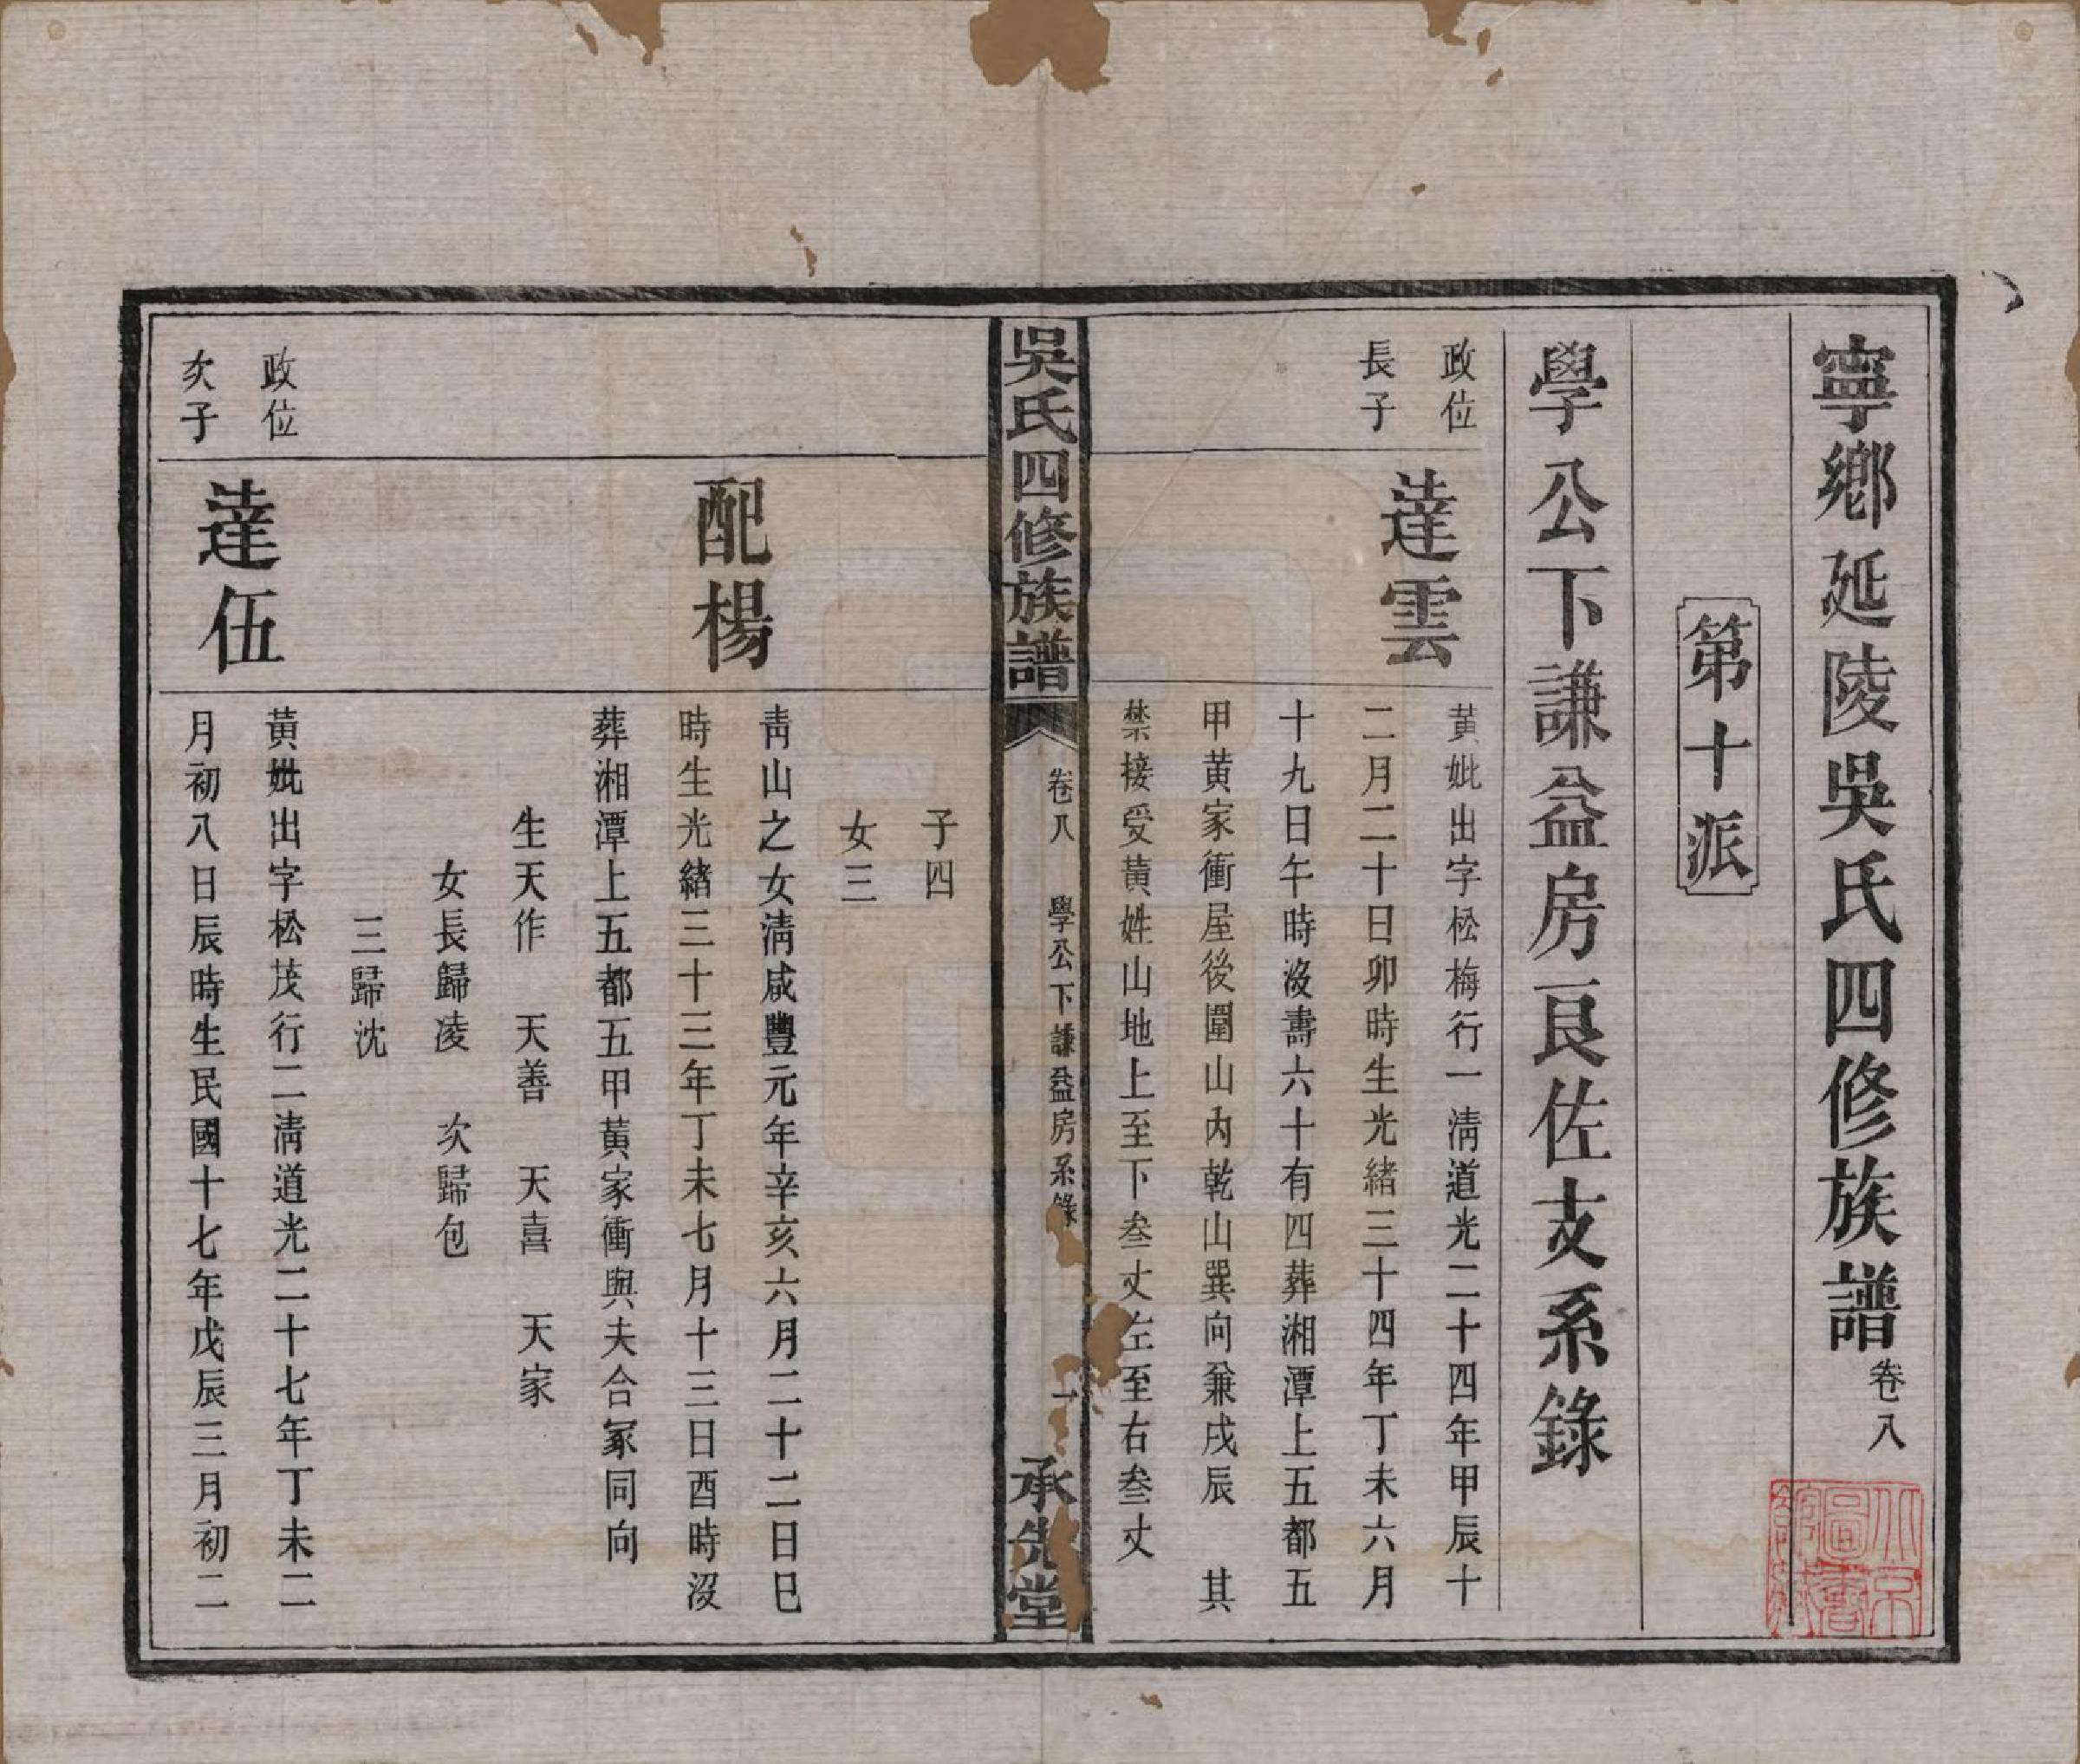 寧鄉延陵吳氏四修族譜卷八
第十派
學公下謙益房良佐支系錄
政位
長子
達雲
黃妣出字松梅行一淸道光二十四年甲辰十
二月二十日卯時生光緒三十四年丁未六月
十九日午時沒壽六十有四葬湘潭上五都五
甲黃家衝屋後圍山內乾山巽向兼戌辰　其
禁接受黃姓山地上至下叁丈左至右叁丈
吳氏四修族譜
卷八　學公下謙益房系錄
一
承先堂
子四
女三
配楊
靑山之女淸咸豐元年辛亥六月二十二日巳
時生光緒三十三年丁未七月十三日酉時沒
葬湘潭上五都五甲黃家衝與夫合冢同向
生天作　天善　天喜　天家
女長歸凌　次歸包
三歸沈
政位
次子
達伍
黃妣出字松茂行二淸道光二十七年丁未二
月初八日辰時生民國十七年戊辰三月初二
北京
圖書
館藏